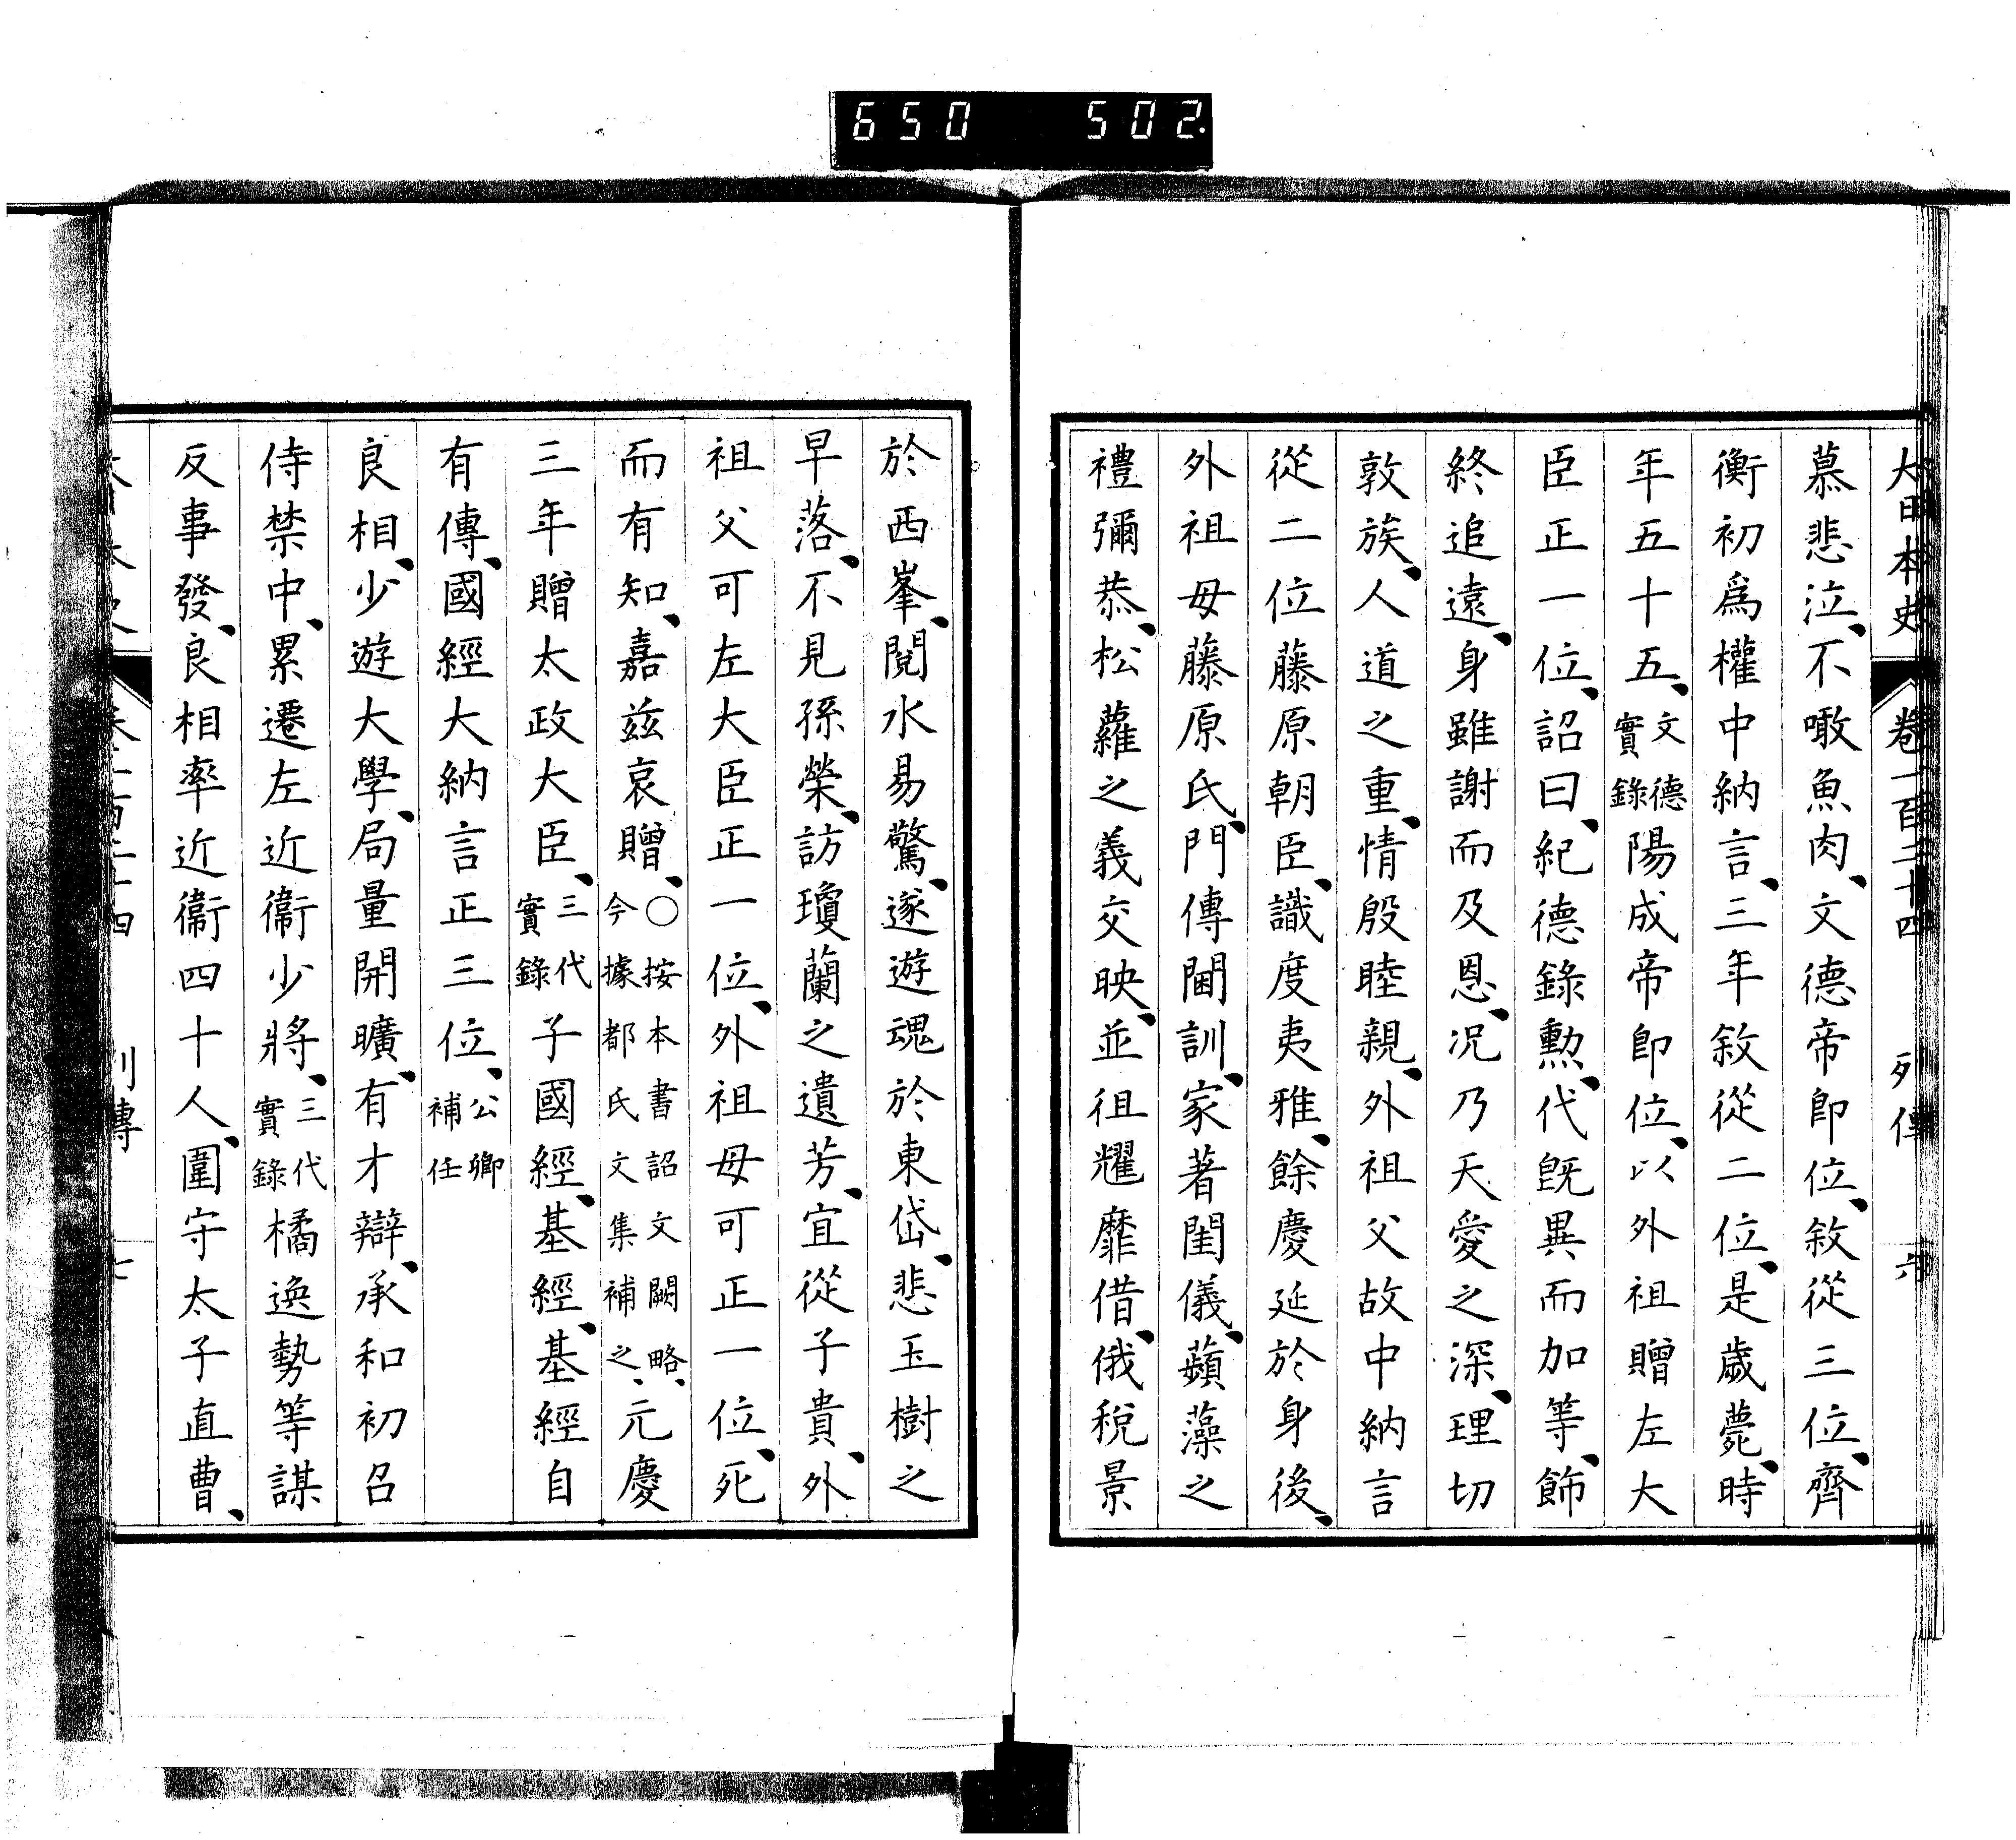 650 502.
大日本史 卷一百二十四 列傳 六
慕悲泣、不噉魚肉、文德帝卽位、敘從三位、齊
衡初爲權中納言、三年敘從二位、是歲薨、時
年五十五、文德實錄陽成帝卽位、以外祖贈左大
臣正一位、詔曰、紀德錄勲、代旣異而加等、飾
終追遠、身雖謝而及恩、況乃天愛之深、理切
敦族、人道之重、情殷睦親、外祖父故中納言
從二位藤原朝臣、識度夷雅、餘慶延於身後、
外祖母藤原氏、門傳閫訓、家著閨儀、蘋藻之
禮彌恭、松蘿之義交映、並徂耀靡借、俄稅景
於西峯、閱水易驚、遂遊魂於東岱、悲玉樹之
早落、不見孫榮、訪瓊蘭之遺芳、宜從子貴、外
祖父可左大臣正一位、外祖母可正一位、死
而有知、嘉玆哀贈、○按本書詔文闕略、今據都氏文集補之、元慶
三年贈太政大臣、三代實錄子國經、基經、基經自
有傳、國經大納言正三位、公卿補任
良相、少遊大學、局量開曠、有才辯、承和初召
侍禁中、累遷左近衞少將、三代實錄橘逸勢等謀
反事發、良相率近衞四十人、圍守太子直曹、
列傳 七